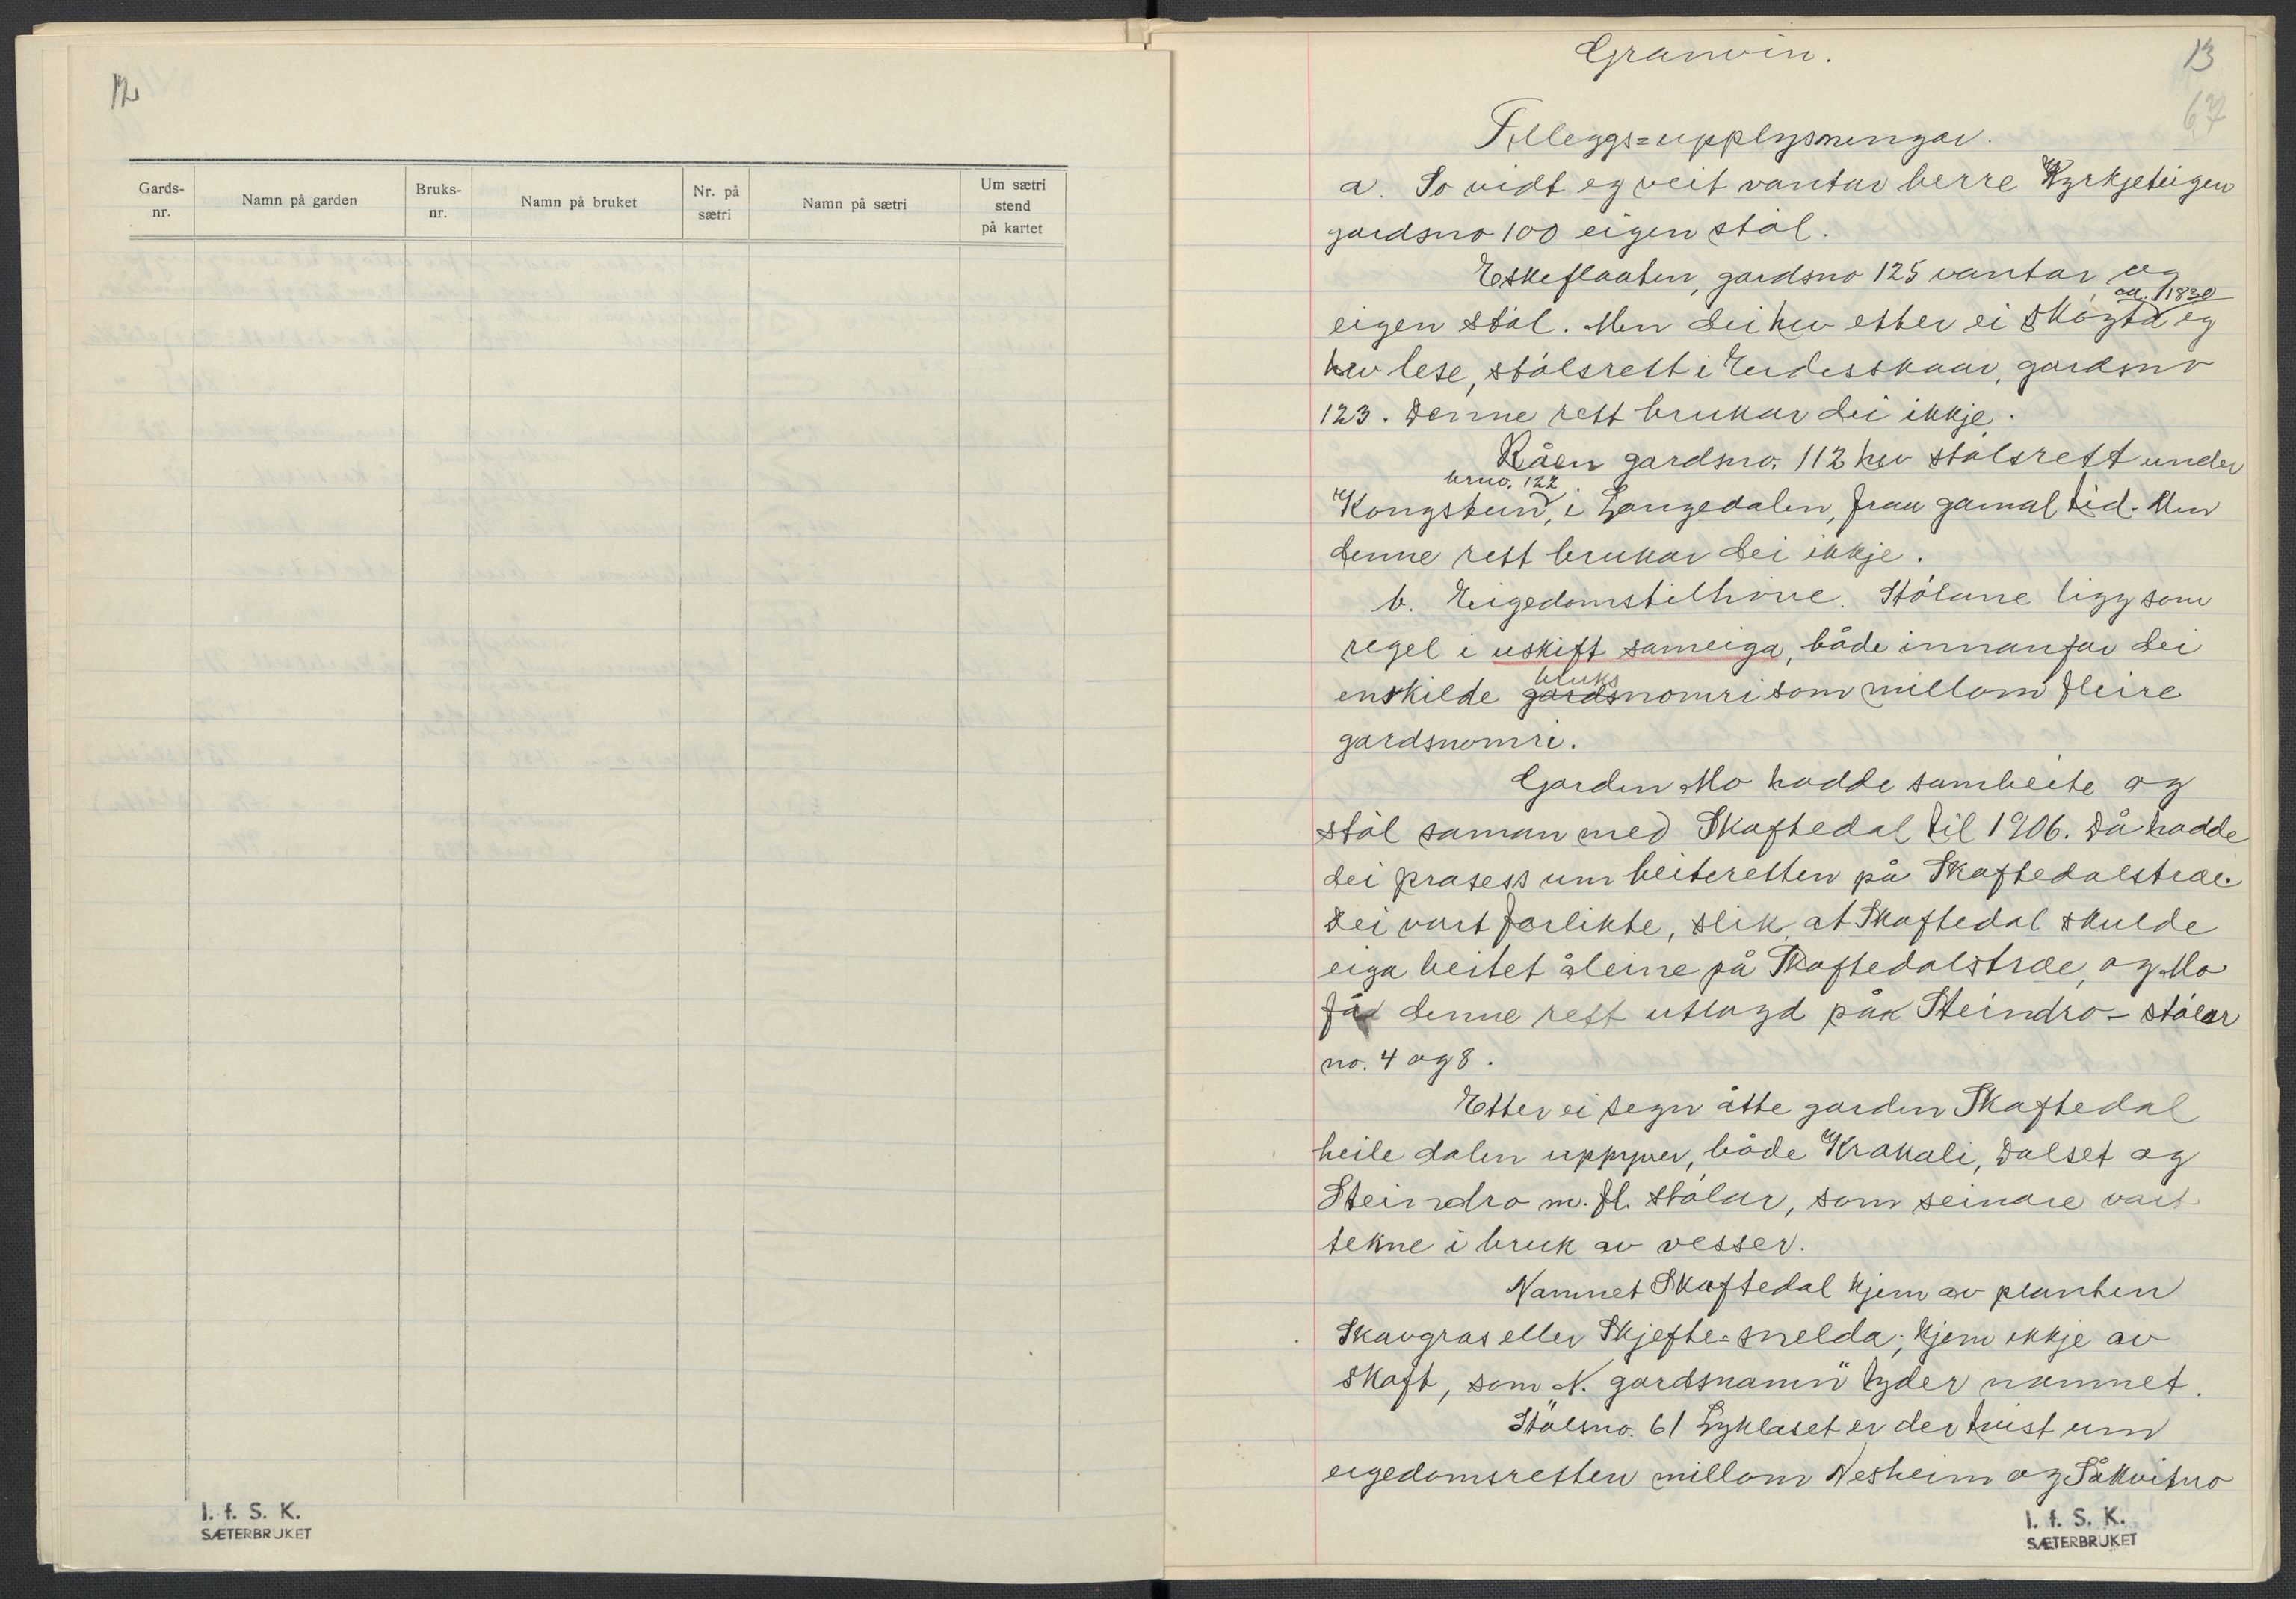 12
Gards-
nr.
Namn på garden
Bruks-
nr.
Namn på bruket
Nr. på
sætri
Namn på sætri
Um sætri
stend
på kartet
I. f. S. K.
SÆTERBRUKET
Granvin.
13
67
Tilleggs=upplysningar.
a. So vidt eg veit vantar berre Kyrkjeteigen
gardsno 100 eigen støl.
Eskeflaaten, gardsno 125 vantar og
eigen støl. Men dei hev etter ei skøyta ca. 1830 eg
hev lese, stølsrett i Eidesskaar, gardsno
123. Denne rett brukar dei ikkje.
Råen gardsno. 112 hev stølsrett under
Kongstun brno. 122, i Langedalen, fraa gamal tid. Men
denne rett brukar dei ikkje.
b. Eigedomstilhøve. Stølane ligg som
regel i uskift sameiga, både innanfor dei
enskilde gards bruksnomri som millom fleire
gardsnomri.
Garden Mo hadde sambeite og
støl saman med Skaftedal til 1906. Då hadde
dei prosess um beiteretten på Skaftedalstræe.
Dei vart forlikte, slik, at Skaftedal skulde
eiga beitet åleine på Skaftedalstræe, og Mo
få denne rett utlagd på Steindro-stølar
no. 4 og 8.
Etter ei segn åtte garden Skaftedal
heile dalen uppyver, både Krakali, Dalset og
Steindro m. fl. stølar, som seinare vart
tekne i bruk av vesser.
Namnet Skaftedal kjem av planten
Skavgras eller Skjefte-snelda; kjem ikkje av
skaft, som "N. gardsnamn" tyder namnet.
Stølsno. 61 Lyklaset er der tvist um
eigedomsretten millom Nesheim og Såkvitno
I. f. S. K.
SÆTERBRUKET